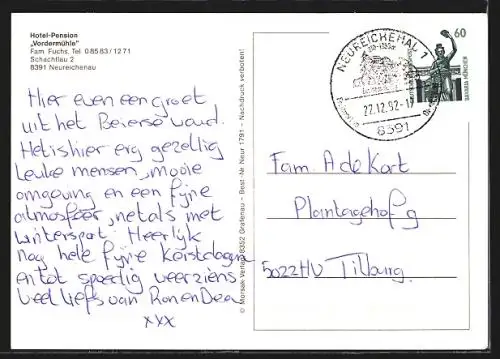 Hotel-Pension
„Vordermühle"
Fam. Fuchs, Tel. 0 85 83 / 12 71
Schachtlau 2
8391 Neureichenau
Hier even een groet
uit het Beierse woud.
Het is hier erg gezellig
Leuke mensen, mooie
omgeving en een fijne
atmosfeer, net als met
wintersport. Heerlijk
nog hele fijne Kerstdagen
en tot spoedig weerziens
Veel liefs van Ron en Dea
xxx
© Morsak Verlag 8352 Grafenau – Best.-Nr. Neur 1791 – Nachdruck verboten!
NEUREICHENAU 1
22.12.92-17
8391
60
BAVARIA MÜNCHEN
Fam. A de Kort
Plantagehof 9
5022HV Tilburg.